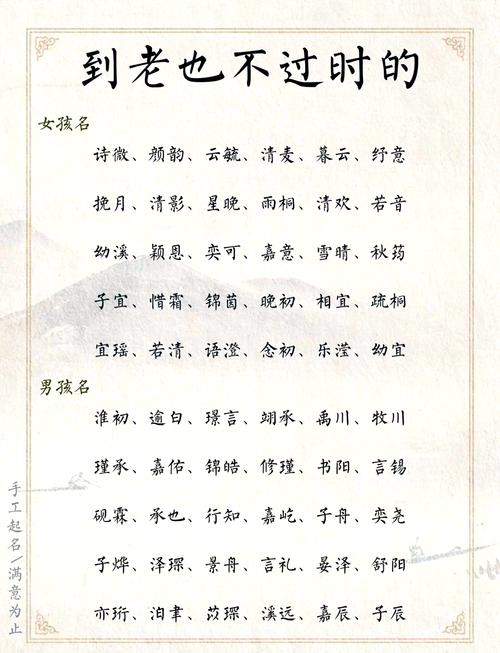 到老也不过时的
女孩名
诗微、颜韵、云毓、清麦、暮云、纾意
挽月、清影、星晚、雨桐、清欢、若音
幼溪、颖恩、奕可、嘉意、雪晴、秋筠
子宜、惜霜、锦茵、晚初、相宜、疏桐
宜瑶、若清、语澄、念初、乐滢、幼宜
男孩名
淮初、逾白、璟言、翊承、禹川、牧川
瑾承、嘉佑、锦皓、修瑾、书阳、言锡
砚霖、承也、行知、嘉屹、子舟、奕尧
子烨、泽琛、景舟、言礼、晏泽、舒阳
亦珩、洎聿、苡琛、溪远、嘉辰、子辰
手工起名/满意为止